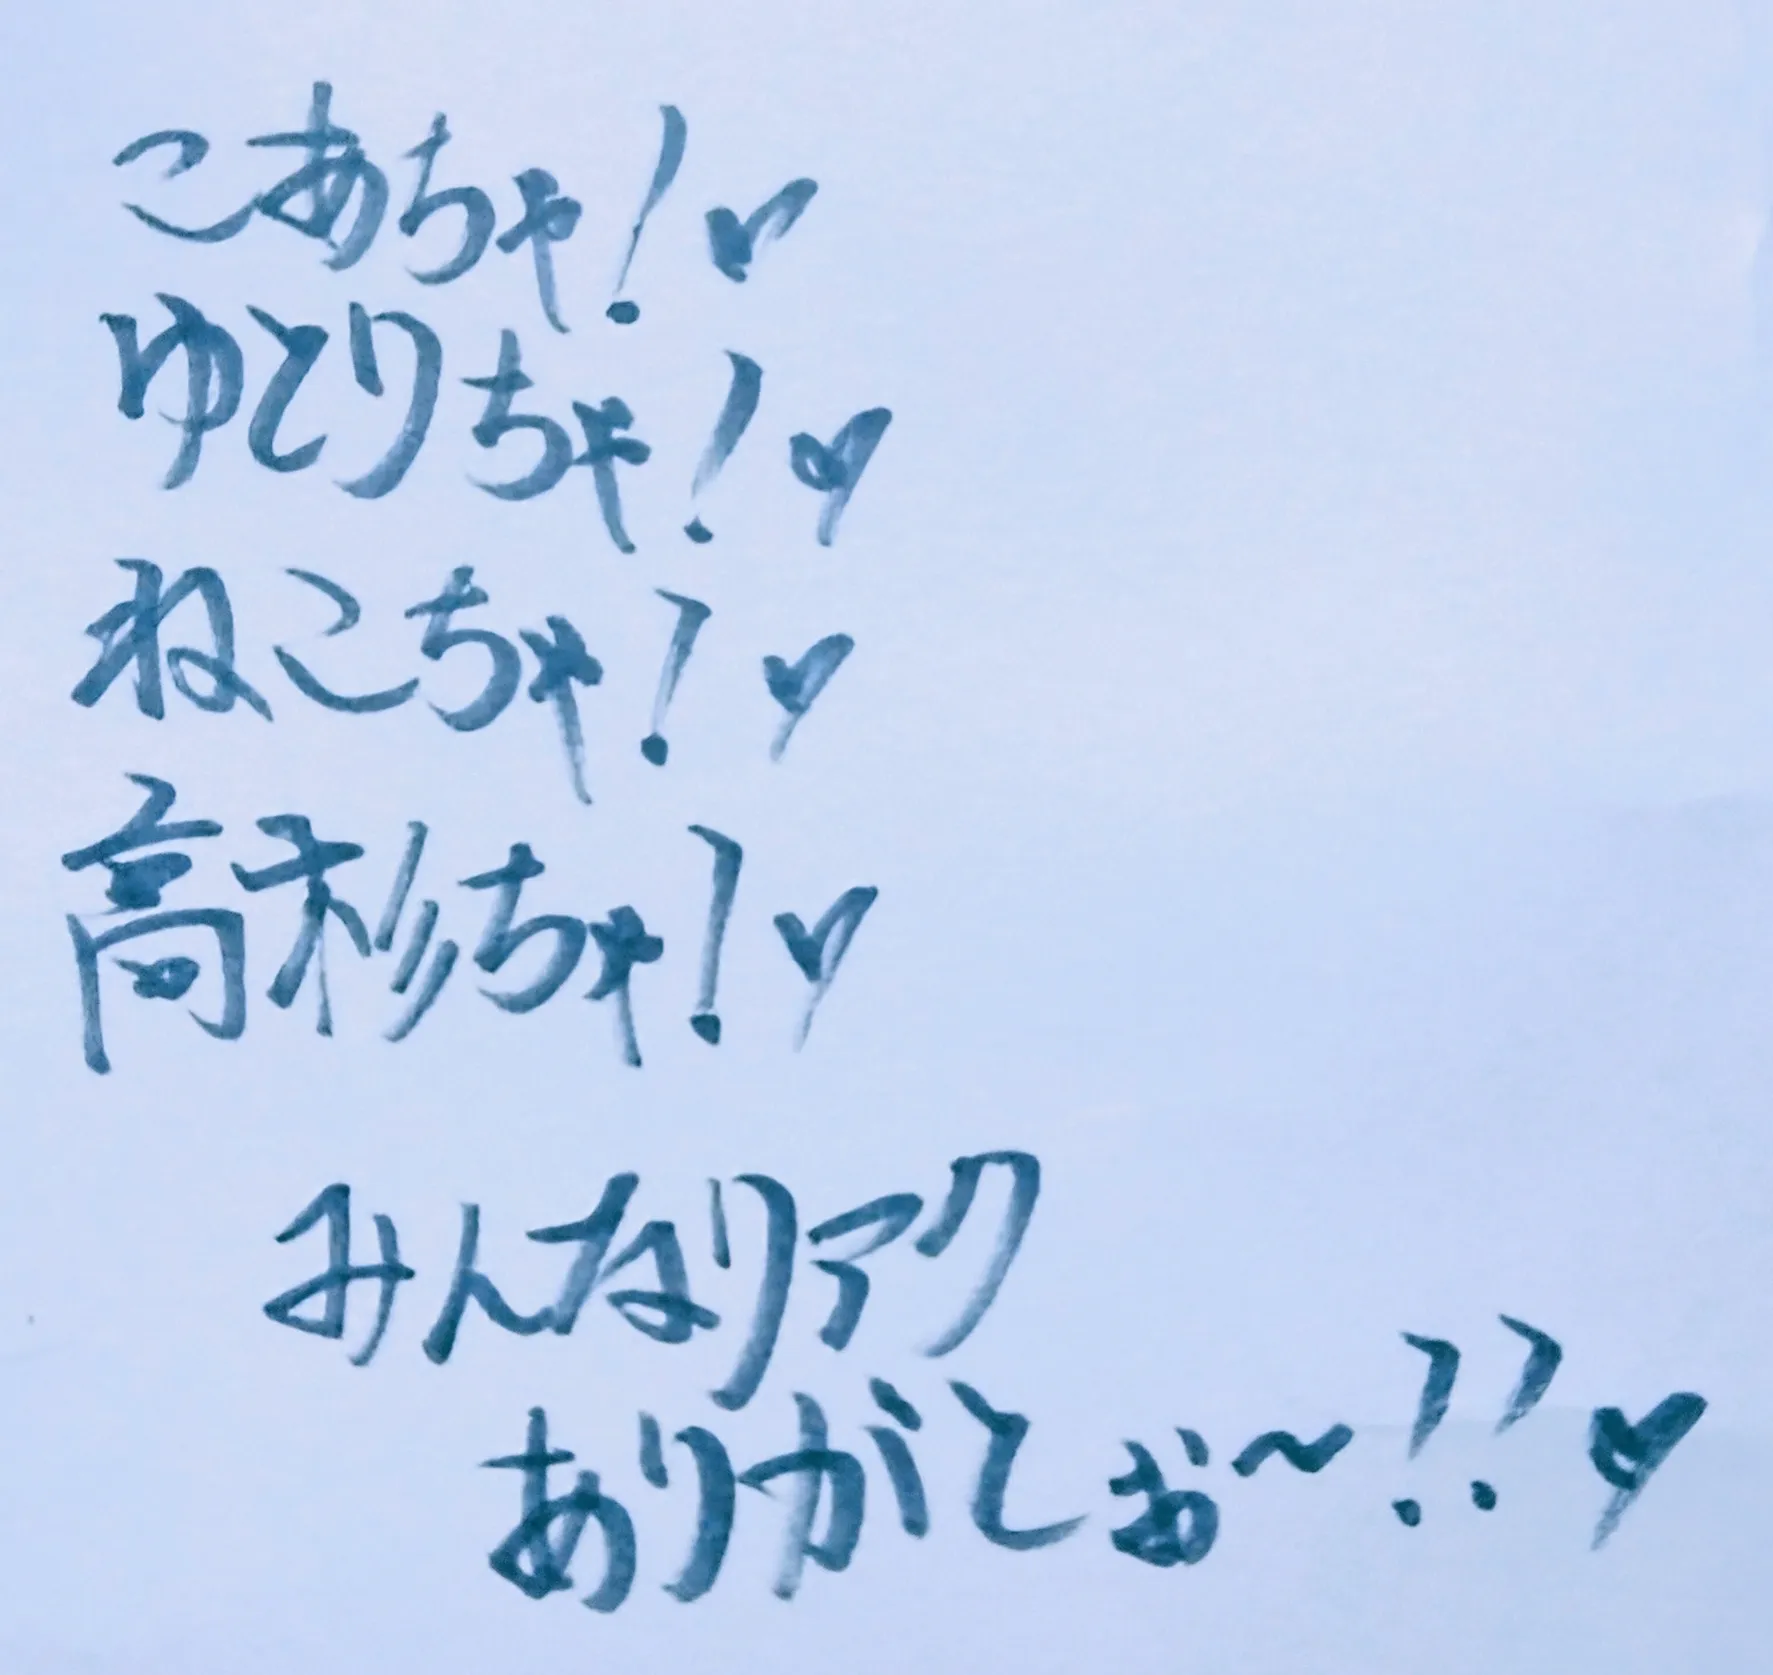 こあちゃ!♥
ゆとりちゃ!♥
ねこちゃ!♥
高杉ちゃ!♥
みんなリアク
ありがとぉ〜!!♥